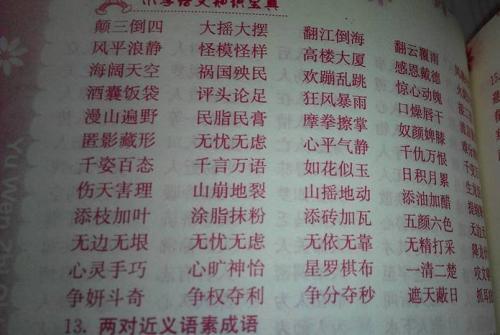 小学语文知识宝典
颠三倒四 大摇大摆 翻江倒海 翻云覆雨
风平浪静 怪模怪样 高楼大厦 感恩戴德
海阔天空 祸国殃民 欢蹦乱跳 惊心动魄
酒囊饭袋 评头论足 狂风暴雨 口燥唇干
漫山遍野 民脂民膏 摩拳擦掌 奴颜婢膝
匿影藏形 无忧无虑 心平气静 千仇万恨
千姿百态 千言万语 如花似玉 日积月累
伤天害理 山崩地裂 山摇地动 添油加醋
添枝加叶 涂脂抹粉 添砖加瓦 五颜六色
无边无垠 无忧无虑 无依无靠 无精打采
心灵手巧 心旷神怡 星罗棋布 一清二楚
争妍斗奇 争权夺利 争分夺秒 遮天蔽日
13. 两对近义语素成语
Yu Wen Zhi